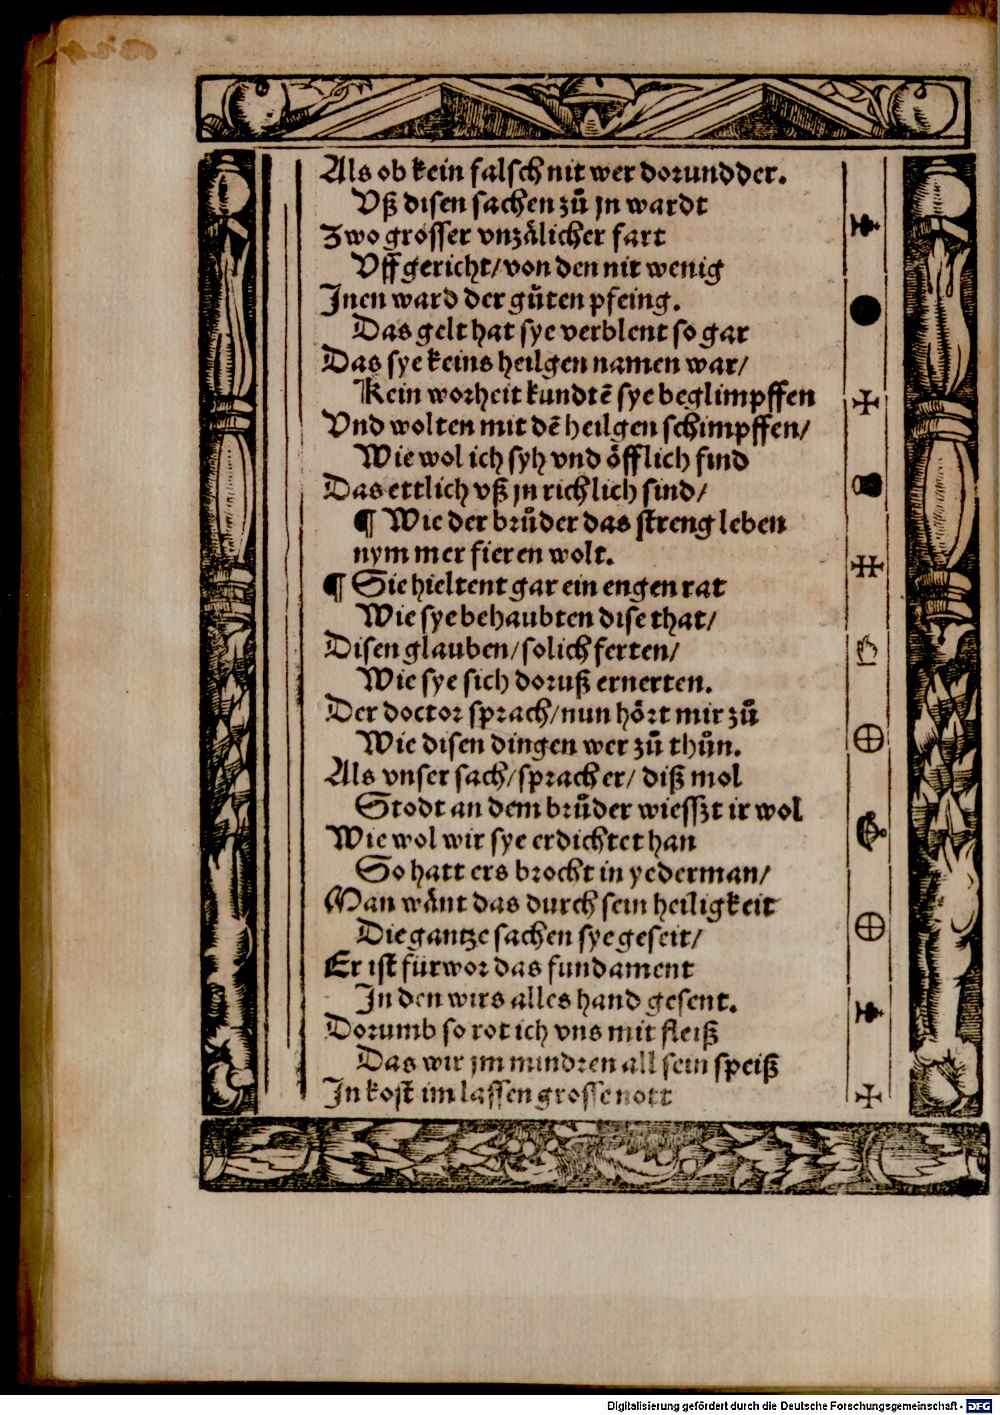 Als ob kein falsch nit wer dorundder.
Vß disen sachen zuͦ jn wardt
Zwo grosser vnzaͤlicher fart
Vff gericht/ von den nit wenig
Jnen ward der guͦten pfeing.
Das gelt hat sye verblent so gar
Das sye keins heilgen namen war/
Kein worheit kundtē sye beglimpffen
Vnd wolten mit dē heilgen schimpffen/
Wie wol ich syh vnd oͤfflich find
Das ettlich vß jn richlich sind/
¶ Wie der bruͦder das streng leben
nym mer fieren wolt.
¶ Sie hieltent gar ein engen rat
Wie sye behaubten dise that/
Disen glauben/ solich ferten/
Wie sye sich doruß ernerten.
Der doctor sprach/ nun hoͤrt mir zuͦ
Wie disen dingen wer zuͦ thuͦn.
Als vnser sach/ sprach er/ diß mol
Stodt an dem bruͦder wiesszt ir wol
Wie wol wir sye erdichtet han
So hatt ers brocht in yederman/
Man waͤnt das durch sein heiligkeit
Die gantze sachen sye geseit/
Er ist fürwor das fundament
Jn den wirs alles hand gesent.
Dorumb so rot ich vns mit fleiß
Das wir jm mindren all sein speiß
Jn kost im lassen grosse nott
Digitalisierung gefördert durch die Deutsche Forschungsgemeinschaft - DFG